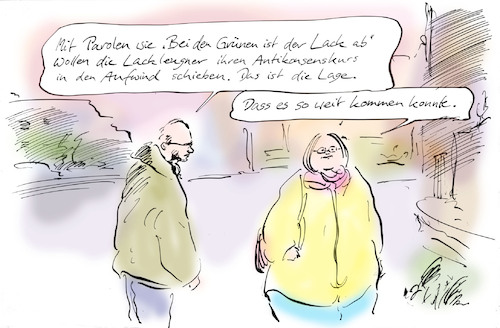 Mit Parolen wie 'Bei den Grünen ist der Lack ab'
wollen die Lackleugner ihren Antikonsenskurs
in den Aufwind schieben. Das ist die Lage.
Dass es so weit kommen konnte.